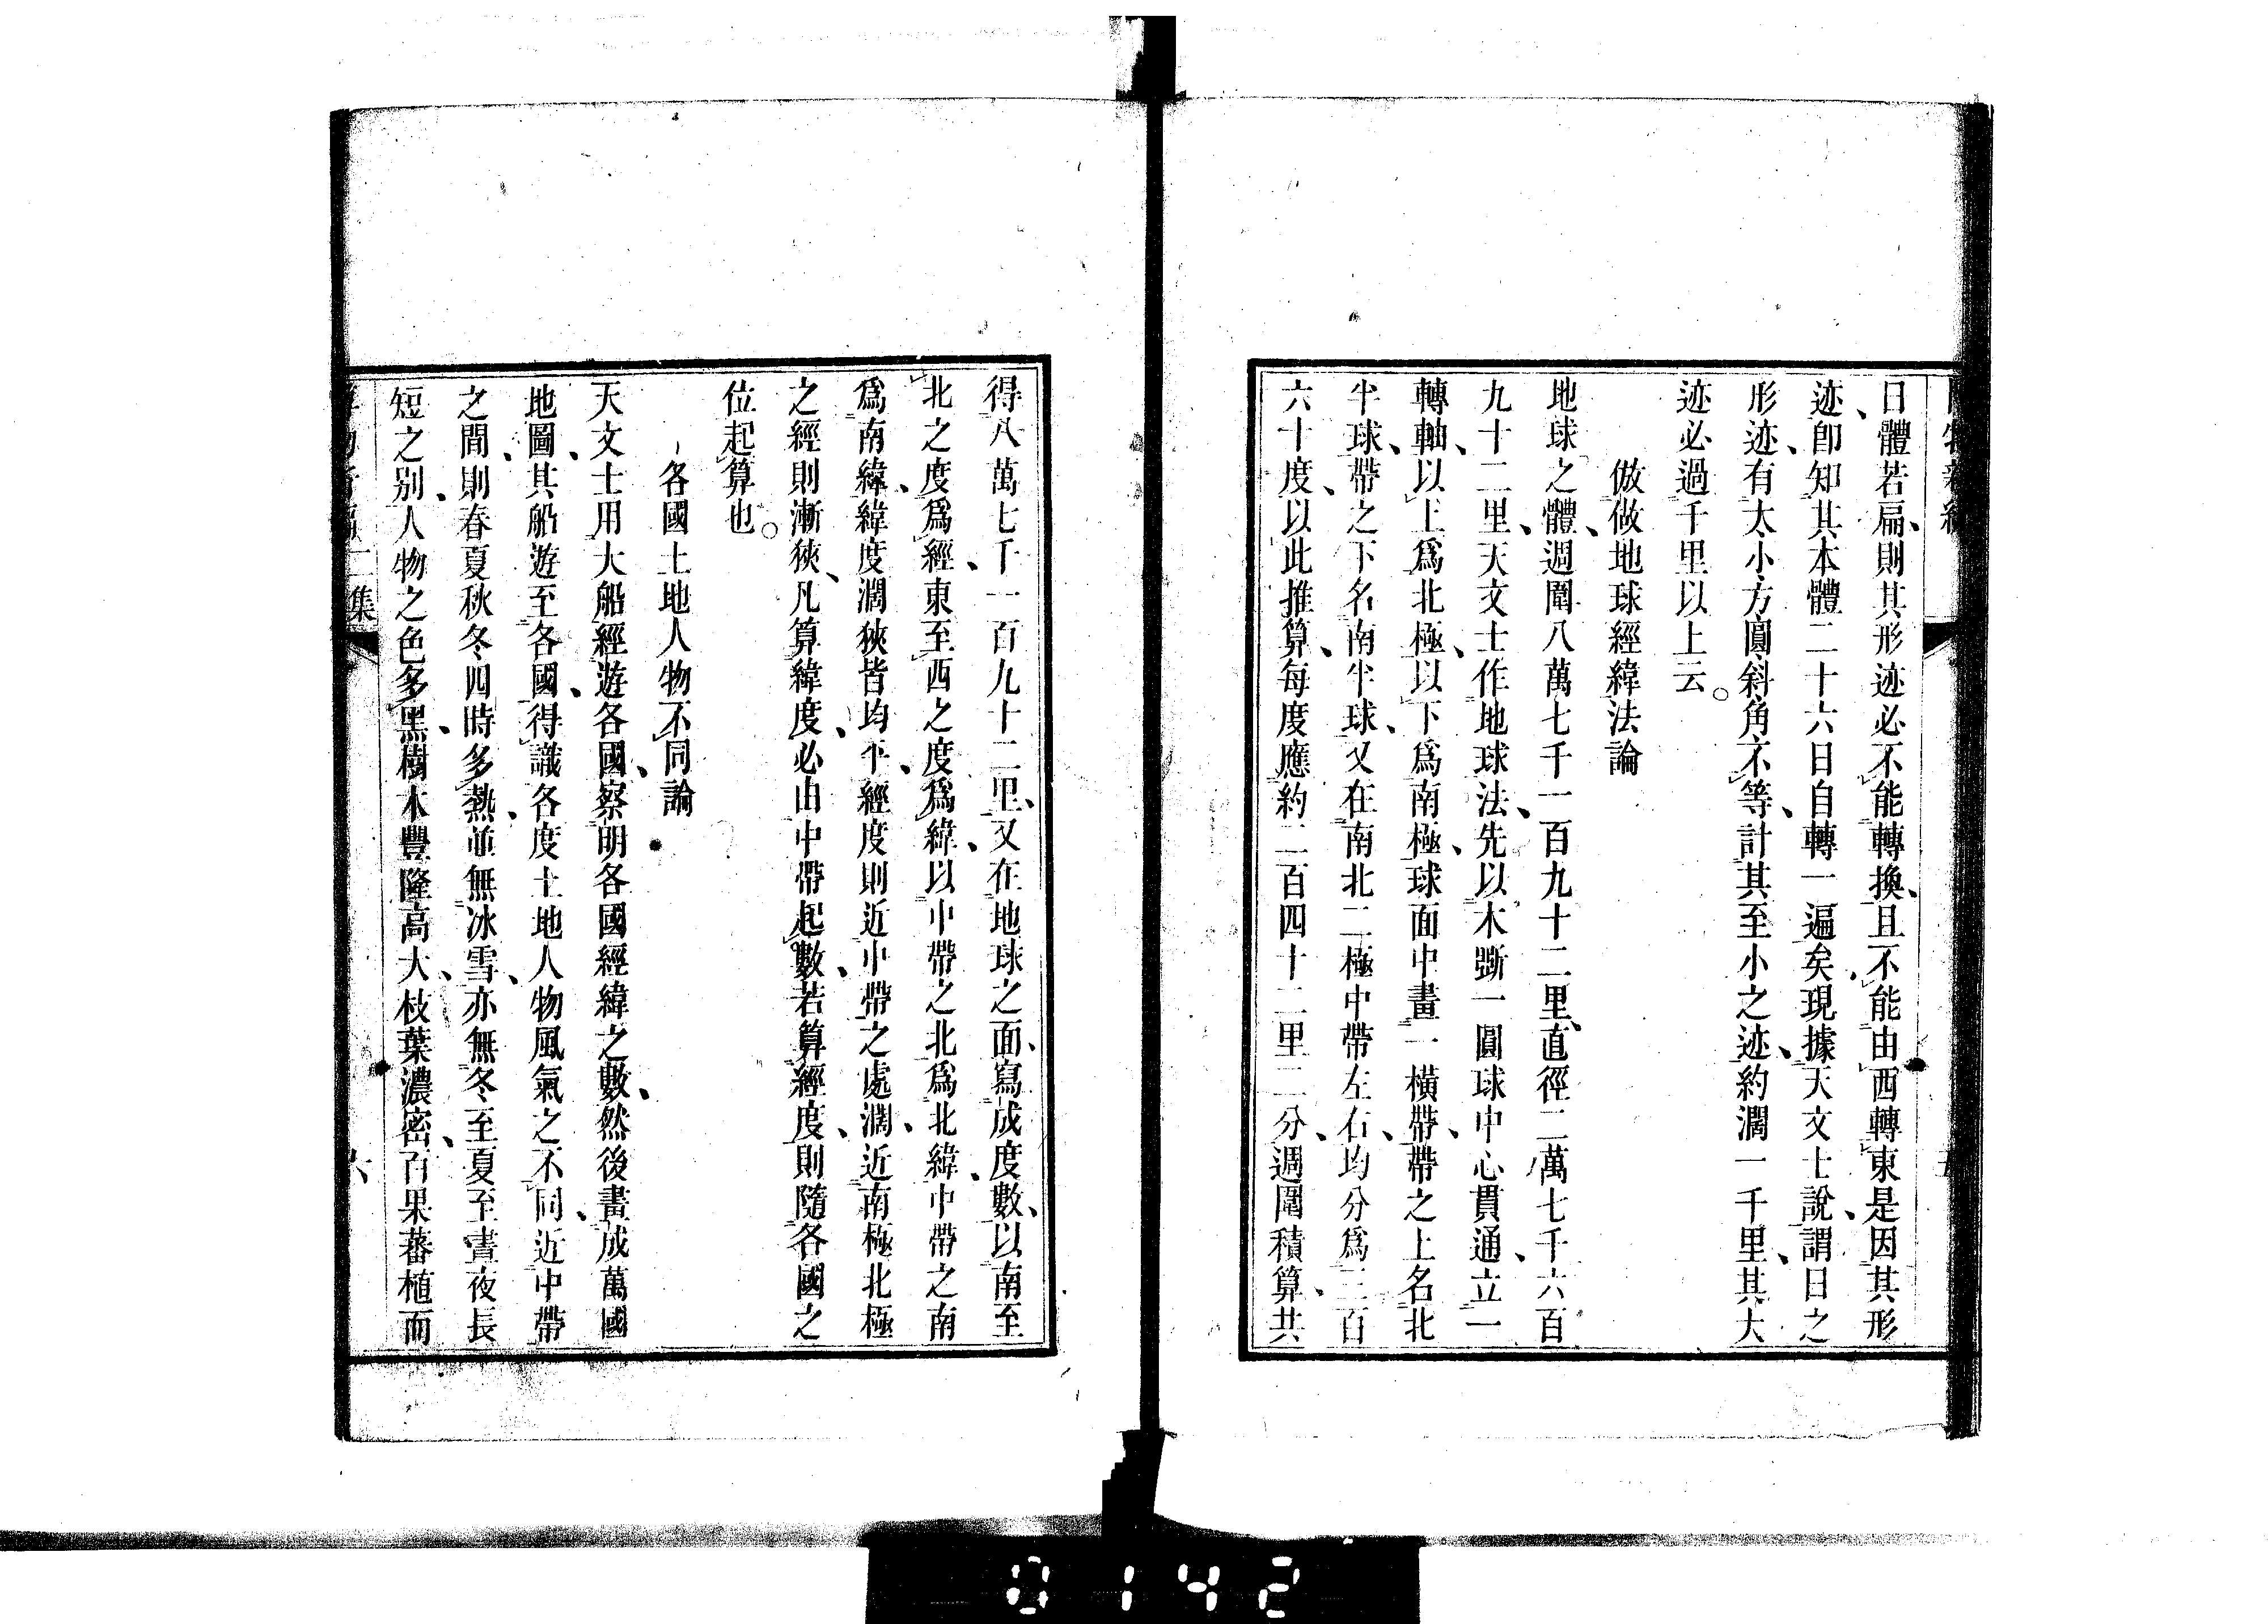 日體若扁、則其形迹必不能轉換、且不能由西轉東是因其形
迹、卽知其本體二十六日自轉一遍矣、現據天文士說、謂日之
形迹、有大小方圓斜角不等、計其至小之迹、約濶一千里、其大
迹必過千里以上云。
倣做地球經緯法論
地球之體、週圍八萬七千一百九十二里、直徑二萬七千六百
九十二里、天文士作地球法、先以木斲一圓球中心貫通、立一
轉軸、以上爲北極、以下爲南極、球面中畫一橫帶、帶之上名北
半球、帶之下名南半球、又在南北二極中帶左右、均分爲三百
六十度、以此推算、每度應約二百四十二里二分、週圍積算、共
得八萬七千一百九十二里、又在地球之面、寫成度數、以南至
北之度爲經、東至西之度爲緯、以中帶之北爲北緯、中帶之南
爲南緯、緯度濶狹皆均平、經度則近中帶之處濶、近南極北極
之經則漸狹、凡算緯度、必由中帶起數、若算經度、則隨各國之
位起算也。
各國土地人物不同論
天文士用大船經遊各國、察明各國經緯之數、然後畫成萬國
地圖、其船遊至各國、得識各度土地人物風氣之不同、近中帶
之間、則春夏秋冬四時多熱、並無冰雪、亦無冬至夏至晝夜長
短之别、人物之色多黑、樹木豐隆高大、枝葉濃密、百果蕃植而
二集
六
0142